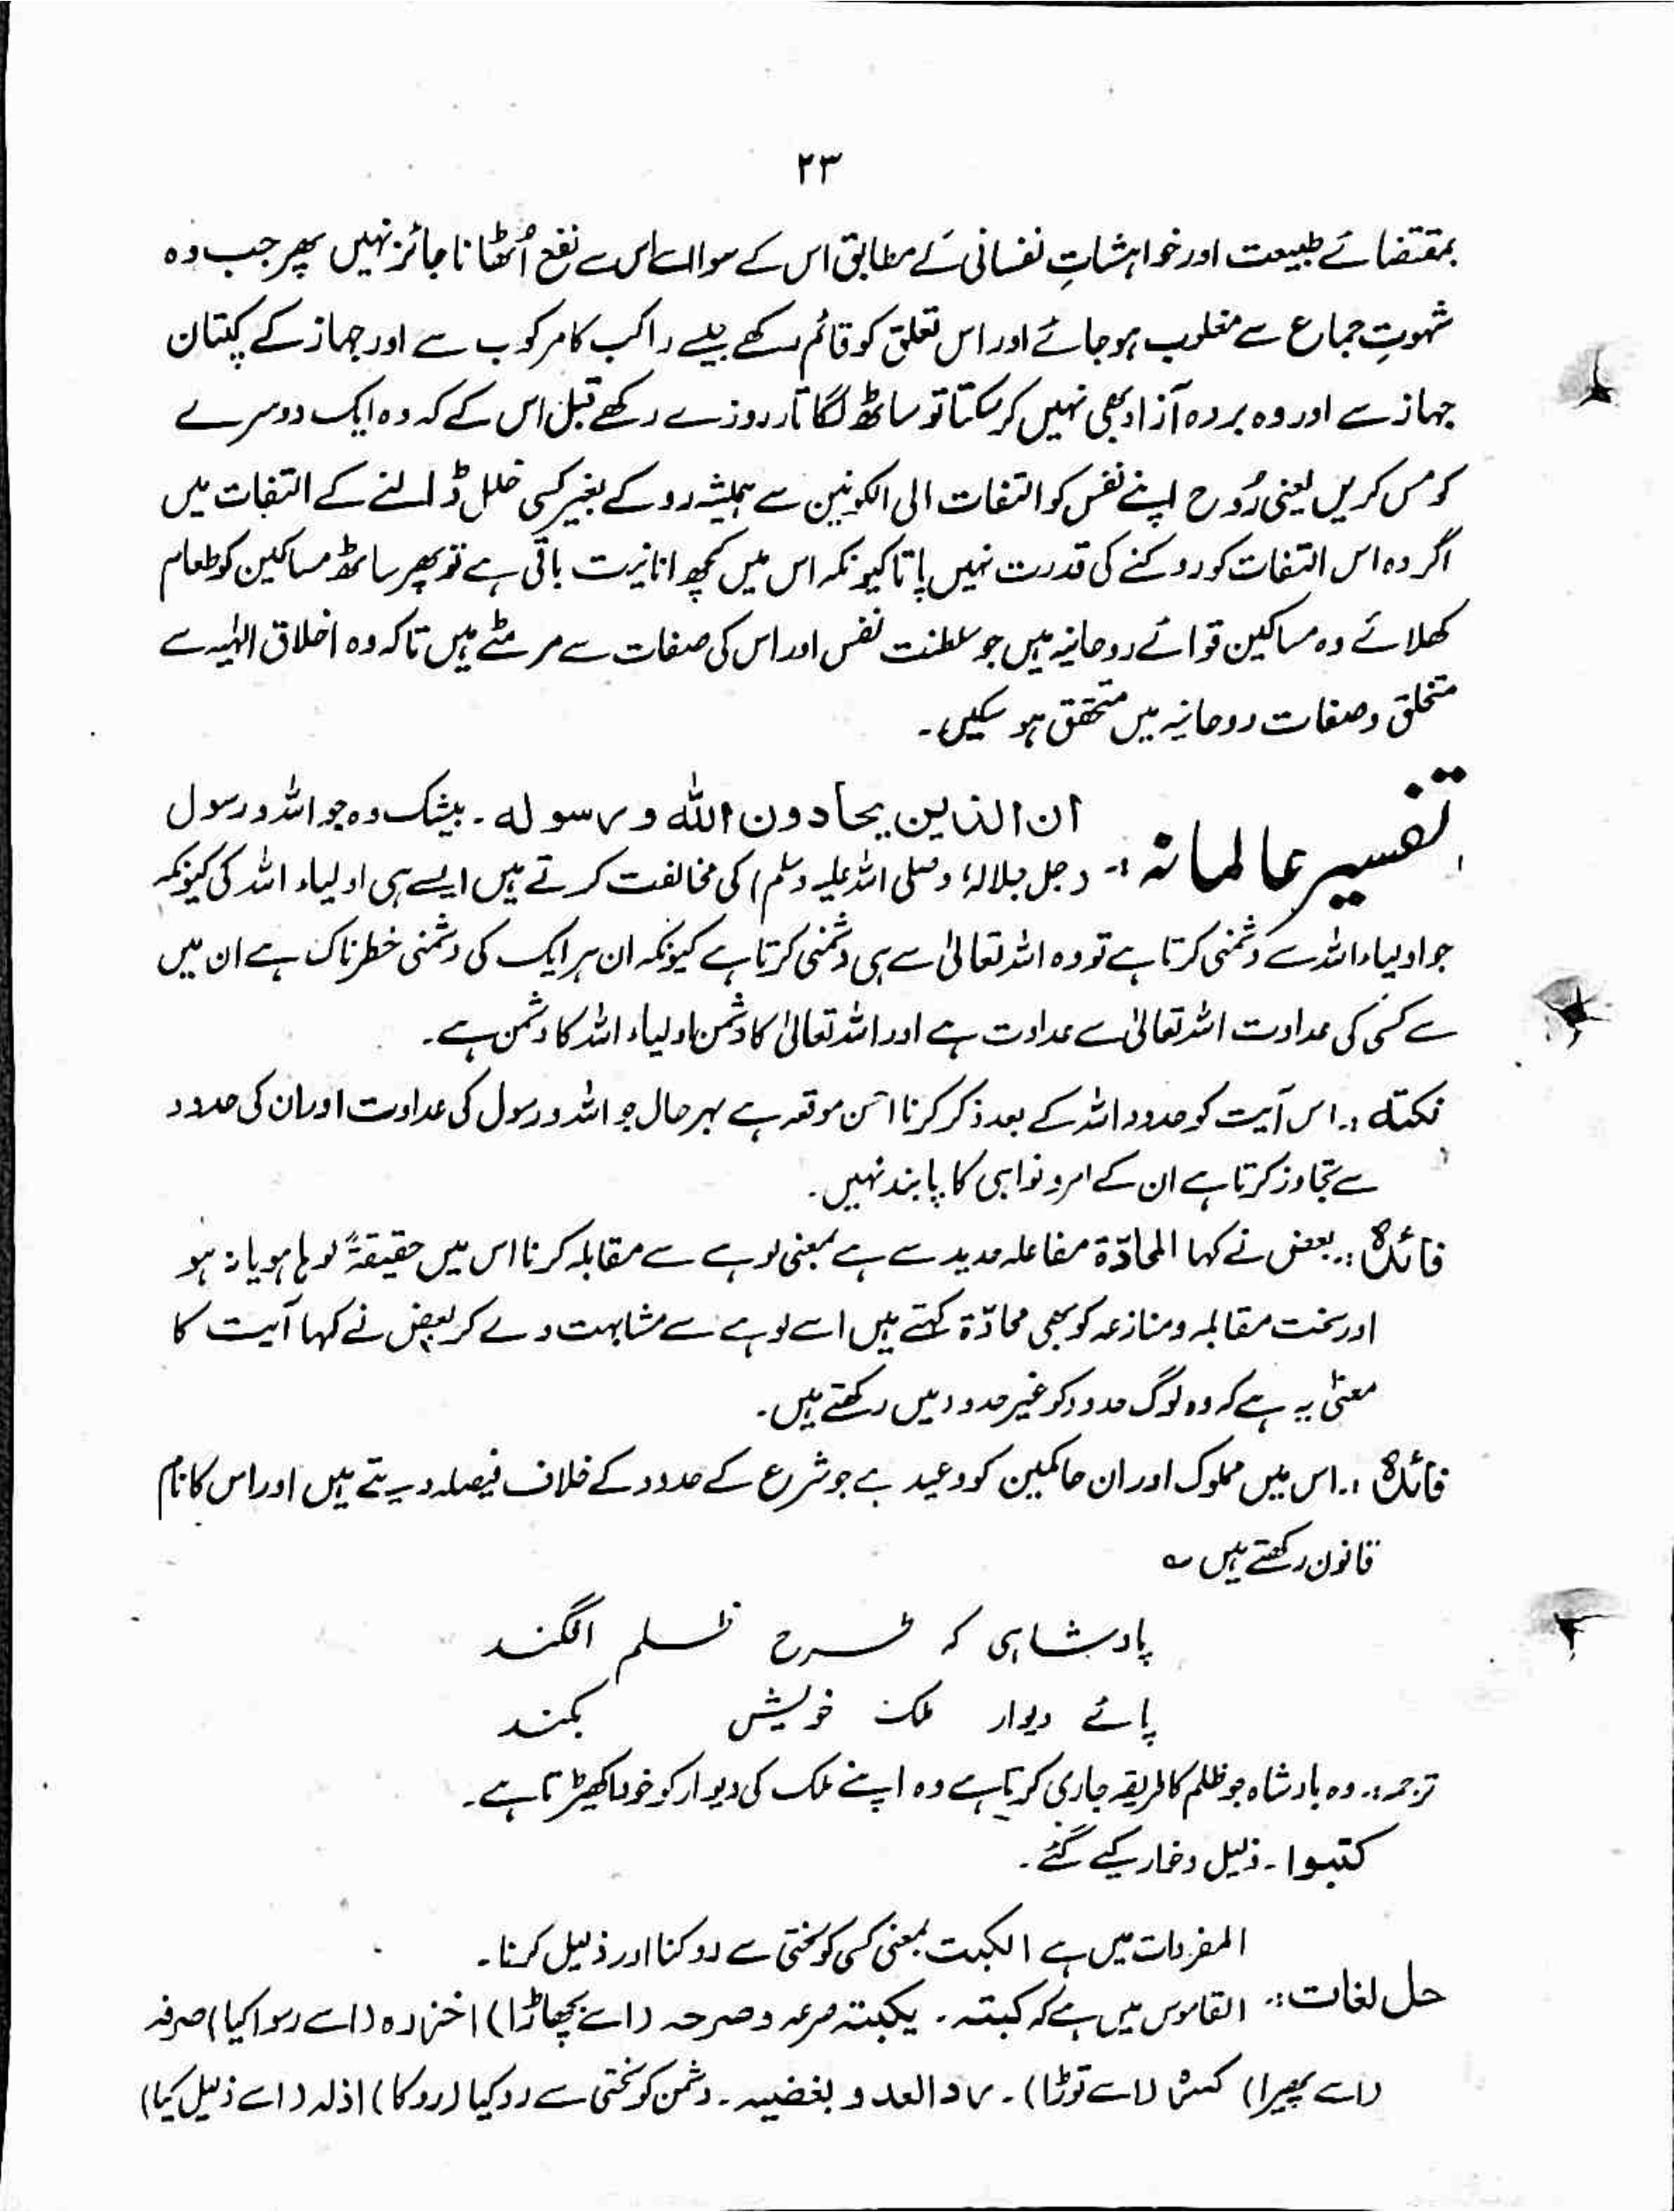 ۲۳
بمقتضائے طبیعت اور خواہشاتِ نفسانی کے مطابق اس کے سوا اسے اس سے نفع اُٹھانا جائز نہیں پھر جب وہ
شہوتِ جماع سے مغلوب ہو جائے اور اس تعلق کو قائم رکھے جیسے راکب کا مرکوب سے اور جہاز کے کپتان
جہاز سے اور وہ بردہ آزاد بھی نہیں کر سکتا تو ساٹھ لگاتار روزے رکھے قبل اس کے کہ وہ ایک دوسرے
کو مس کریں یعنی رُوح اپنے نفس کو التفات الی الکونین سے ہمیشہ روکے بغیر کسی خلل ڈالنے کے التفات میں
اگر وہ اس التفات کو روکنے کی قدرت نہیں پاتا کیونکہ اس میں کچھ انانیت باقی ہے تو پھر ساٹھ مساکین کو طعام
کھلائے وہ مساکین قوائے روحانیہ ہیں جو سلطنت نفس اور اس کی صفات سے مر مٹے ہیں تاکہ وہ اخلاق الٰہیہ سے
متخلق وصفات روحانیہ میں متحقق ہو سکیں۔
تفسیر عالمانہ :۔ ان الذین یحادون اللہ و رسوله ۔ بیشک وہ جو اللہ و رسول
(جل جلالہٗ وصلی اللہ علیہ وسلم) کی مخالفت کرتے ہیں ایسے ہی اولیاء اللہ کی کیونکہ
جو اولیاء اللہ سے دشمنی کرتا ہے تو وہ اللہ تعالیٰ سے ہی دشمنی کرتا ہے کیونکہ ان ہر ایک کی دشمنی خطرناک ہے ان میں
سے کسی کی عداوت اللہ تعالیٰ سے عداوت ہے اور اللہ تعالیٰ کا دشمن اولیاء اللہ کا دشمن ہے۔
نکتہ :۔ اس آیت کو حدود اللہ کے بعد ذکر کرنا احسن موقعہ ہے بہر حال جو اللہ و رسول کی عداوت اور ان کی حدود
سے تجاوز کرتا ہے ان کے امر و نواہی کا پابند نہیں۔
فائدہ :۔ بعض نے کہا المحادّة مفاعلہ حدید سے ہے بمعنی لوہے سے مقابلہ کرنا اس میں حقیقۃً لوہا ہو یا نہ ہو
اور سخت مقابلہ و منازعہ کو بھی محادّة کہتے ہیں اسے لوہے سے مشابہت دے کر بعض نے کہا آیت کا
معنیٰ یہ ہے کہ وہ لوگ حدود کو غیر حدود میں رکھتے ہیں۔
فائدہ :۔ اس میں ملوک اور ان حاکمین کو وعید ہے جو شرع کے حدود کے خلاف فیصلہ دیتے ہیں اور اس کا نام
قانون رکھتے ہیں ؎
پادشاہی کہ طرح ظلم افگند
پائے دیوار ملک خویش بکند
ترجمہ :۔ وہ بادشاہ جو ظلم کا طریقہ جاری کرتا ہے وہ اپنے ملک کی دیوار کو خود اکھیڑتا ہے۔
کتبوا ۔ ذلیل و خوار کیے گئے۔
المفردات میں ہے الکبت بمعنی کسی کو سختی سے روکنا اور ذلیل کرنا۔
حل لغات :۔ القاموس میں ہے کہ کبتہ ۔ یکبتہ صرعہ و صرحہ (اسے پچھاڑا) اخزاہ (اسے رسوا کیا) صرفہ
(اسے پھیرا) کسرہ (اسے توڑا) ۔ رد العدو بغضبہ ۔ دشمن کو سختی سے رد کیا (روکا) اذلہ (اسے ذلیل کیا)